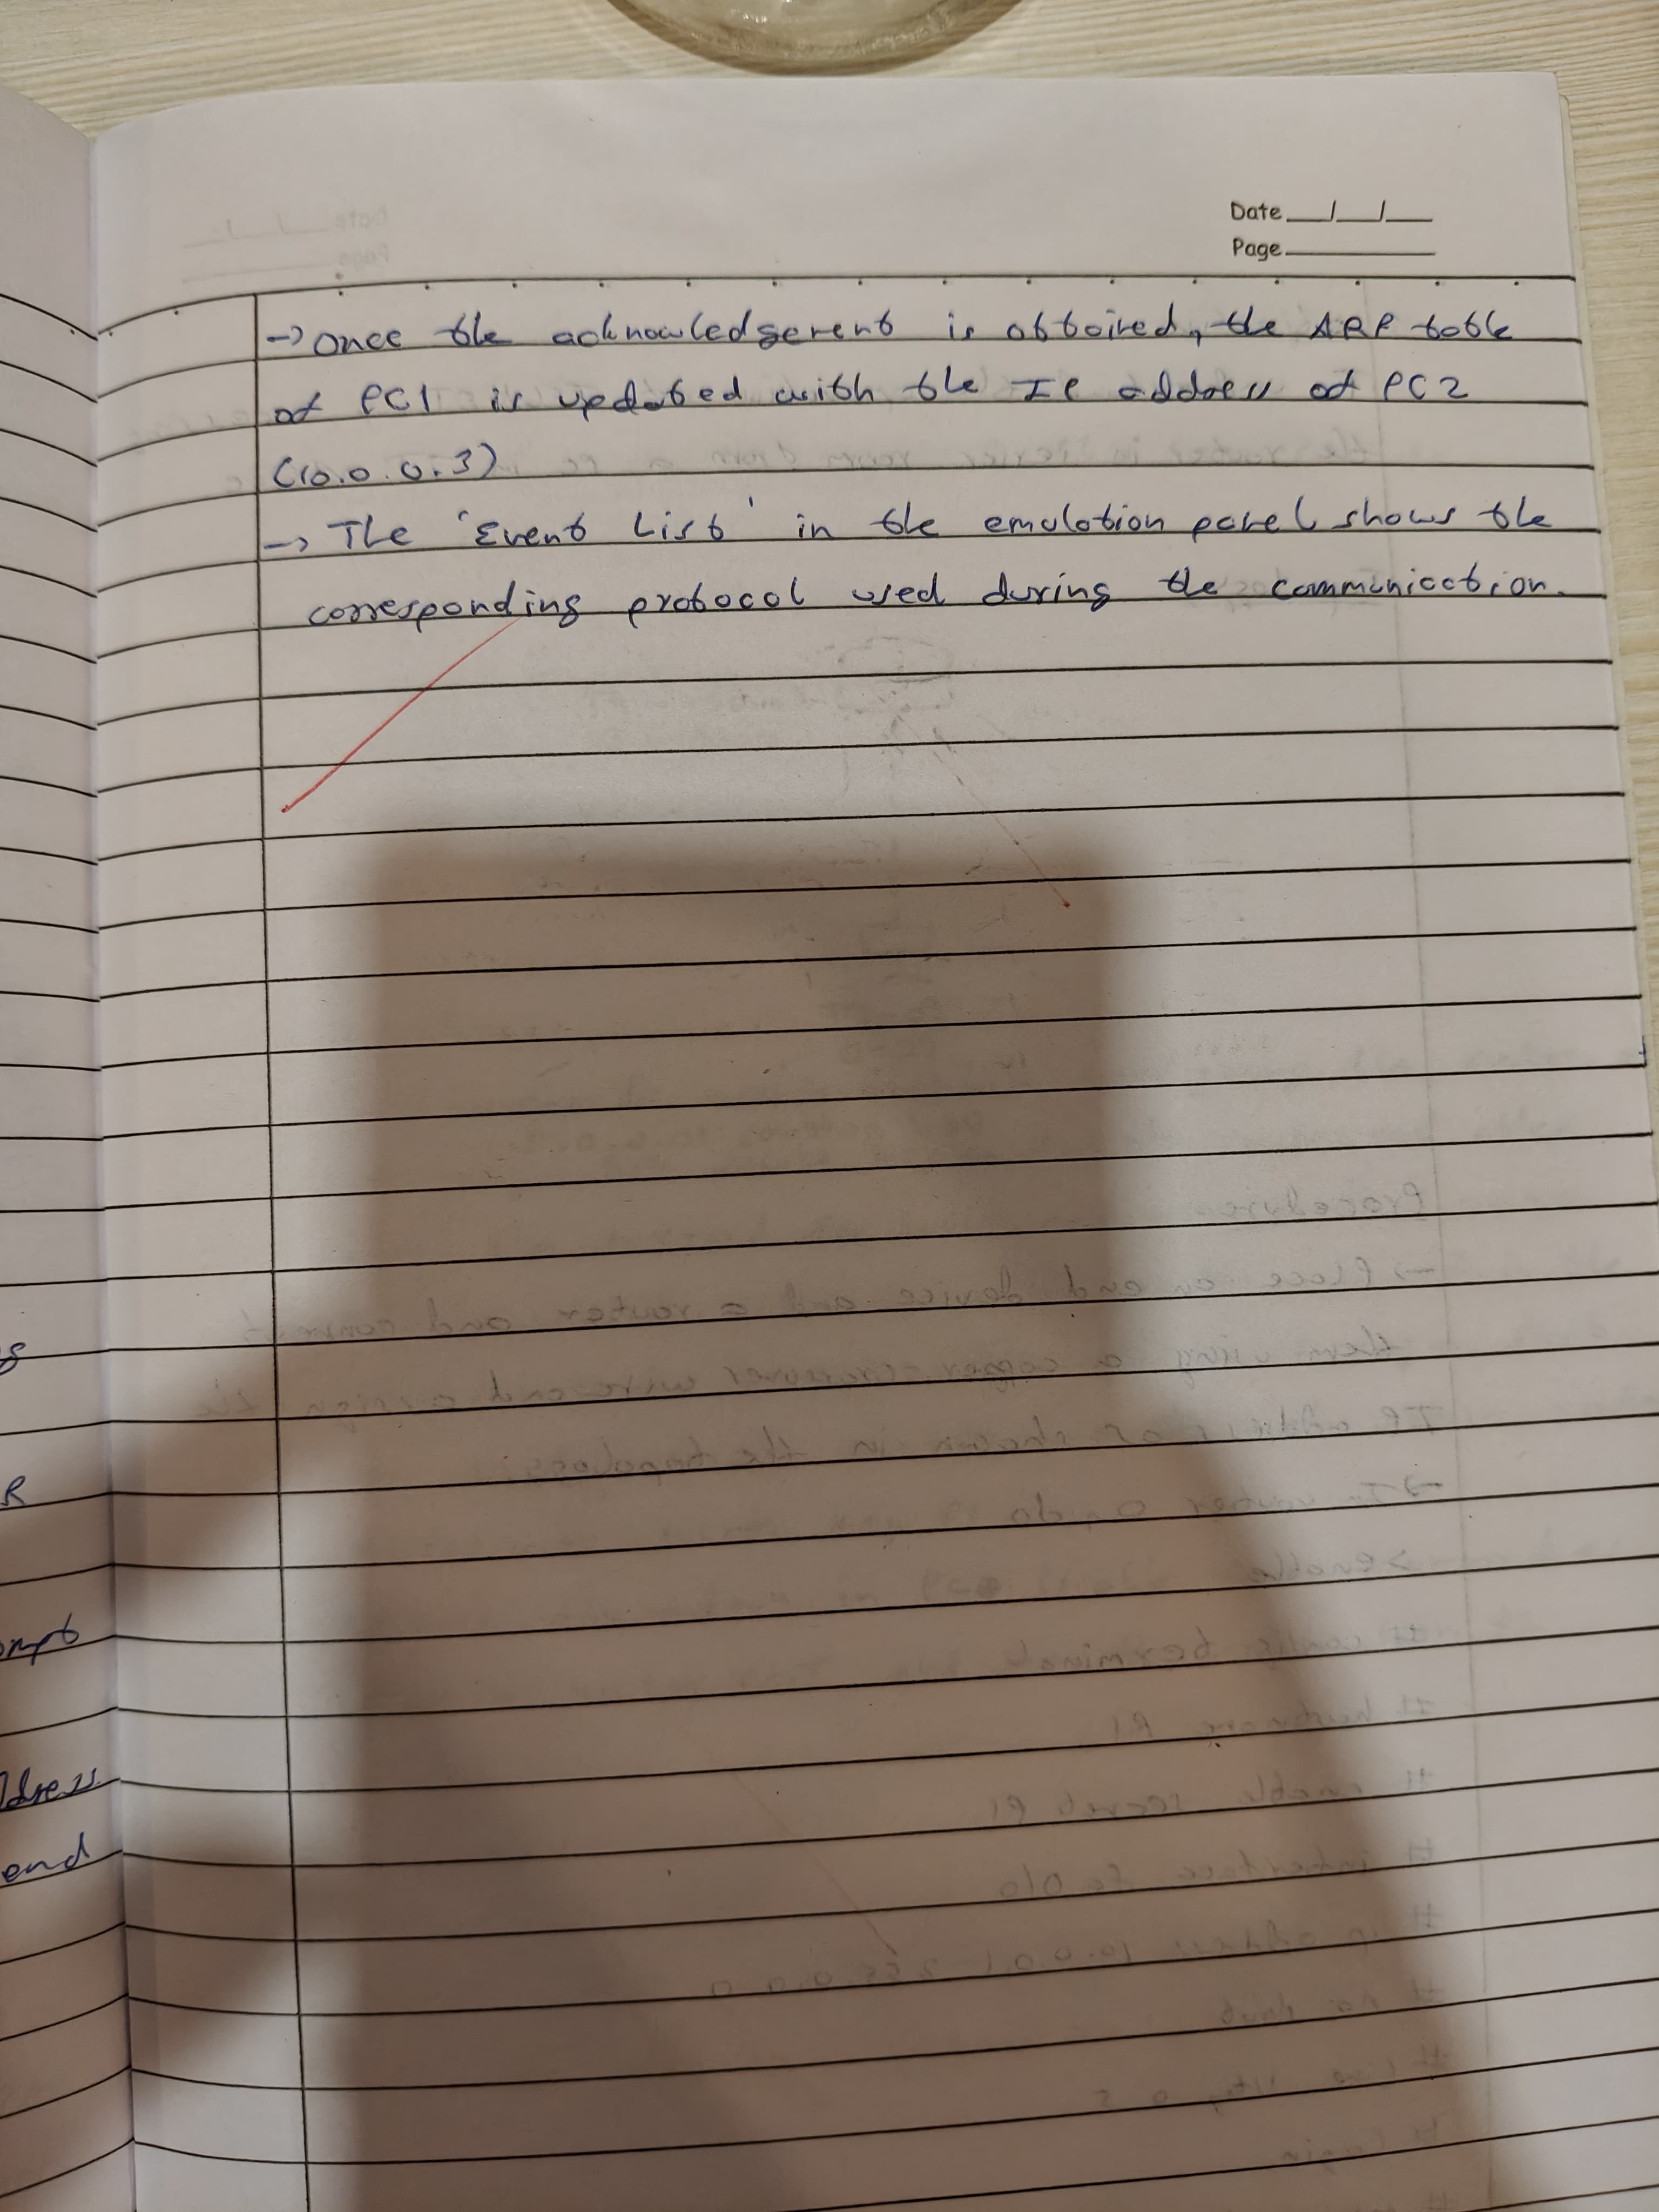 Date __/__/__
Page ________
→ Once the acknowledgement is obtained, the ARP table
of PC1 is updated with the IP address of PC2
(10.0.0.3)
→ The 'Event List' in the emulation panel shows the
corresponding protocol used during the communication.
R
ddress
end